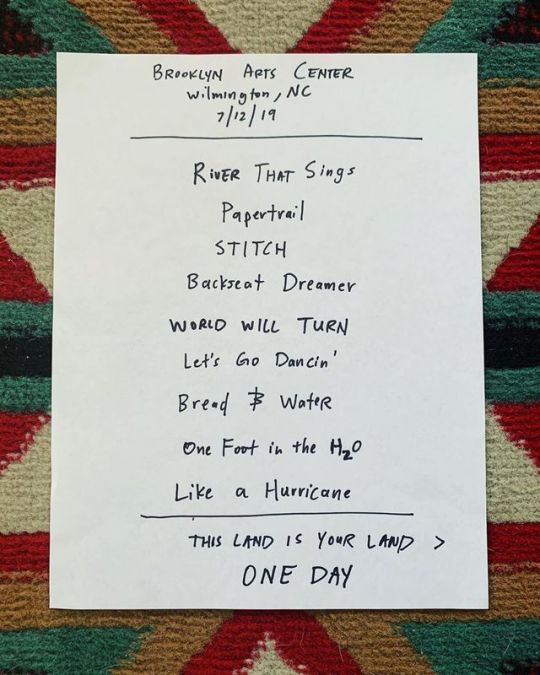 BROOKLYN ARTS CENTER
Wilmington, NC
7/12/19
RIVER THAT Sings
Papertrail
STITCH
Backseat Dreamer
WORLD WILL TURN
Let's Go Dancin'
Bread & Water
One Foot in the H₂O
Like a Hurricane
THIS LAND IS YOUR LAND >
ONE DAY